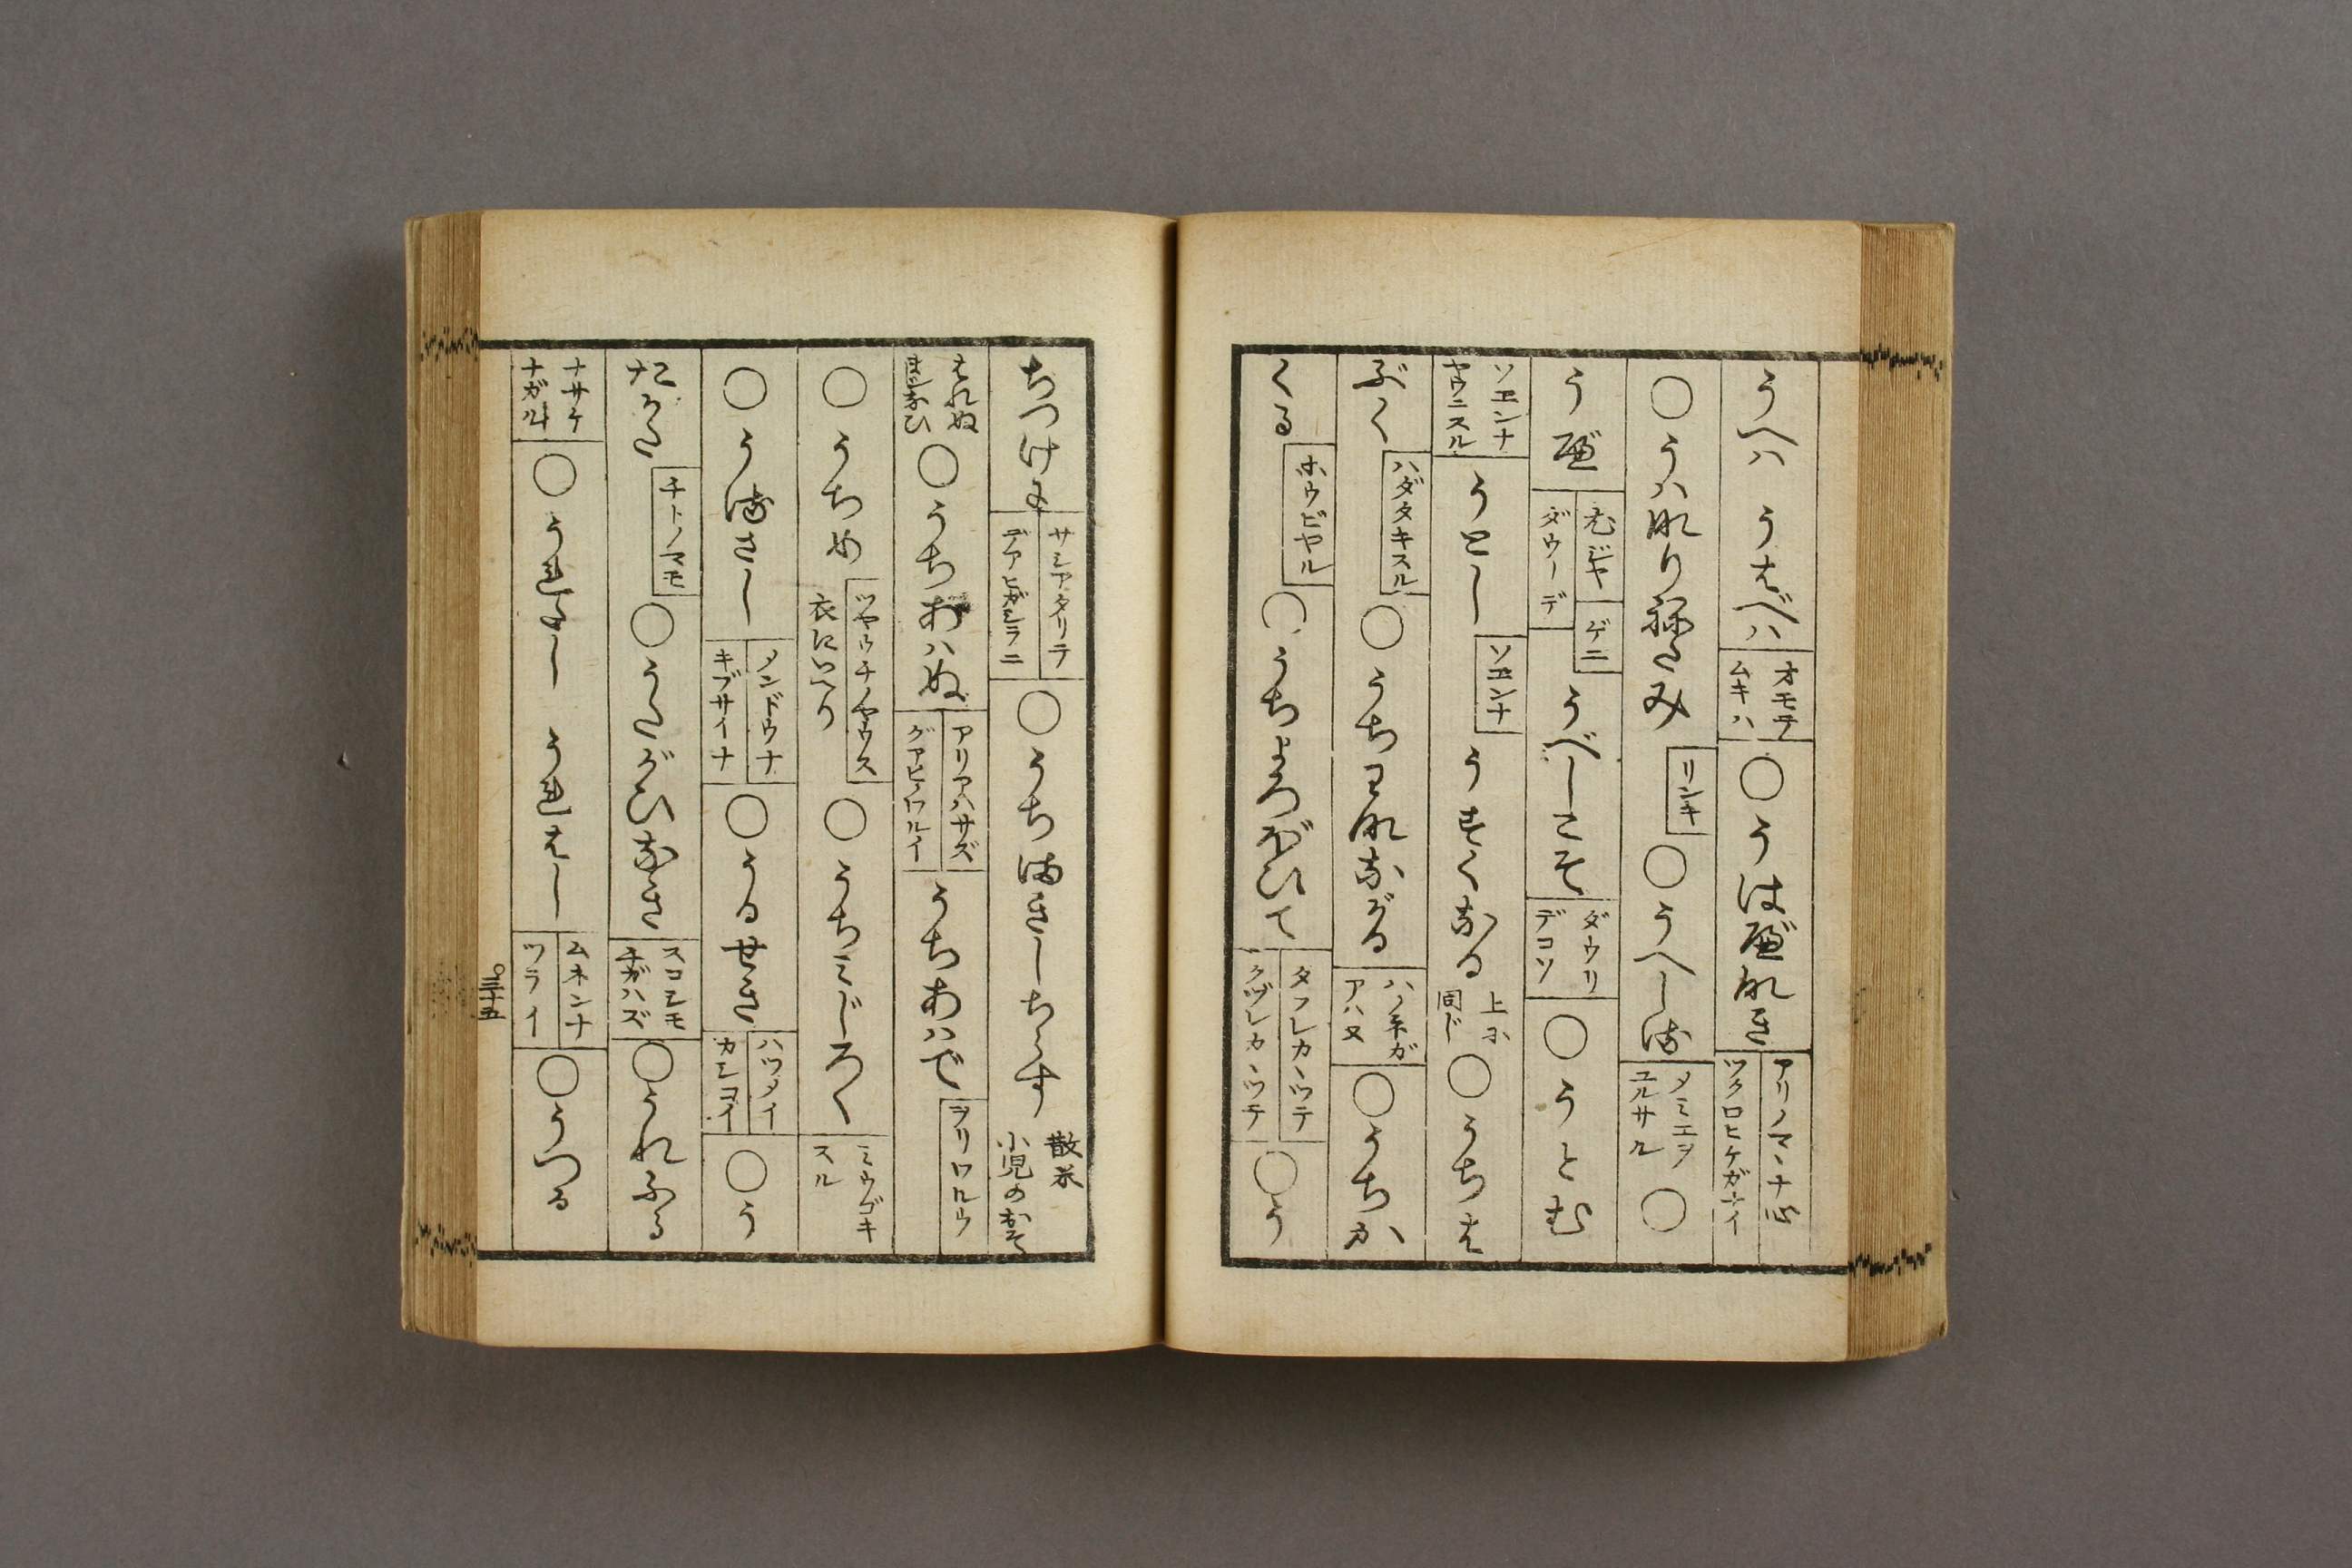 うへハ うはべハ オモテムキハ ○うはべ
アリノマヽナ心 ツクロヒケガナイ
○うハなりねたみ リンキ ○うへし タミエヲユルサル ○
うべ 尤ジヤ ゲニ ダウリデ うべしこそ ダウリデコソ ○うとむ
ソヱンナヤウニスル うとし ソヱンナ うとくなる 上に同じ ○うちは
ぶく ハダタキスル ○うちわななる ハノネガアハヌ ○うちか
くる ホウビヤル ○うちよろぼひて タフレカヽツテ クヅレカヽツテ ○う
ちつけに サシアタリテ デアヒガシラニ ○うちまきしちらす 散米 小児のおそ
はれぬまじなひ ○うちあハぬ アリアハサズ グアヒノワルイ うちあハで ヲリワルウ
○うちめ ツヤウチノヤウス 衣にいへり ○うちミじろく ミウゴキスル
○うるさし メンドウナ キブサイナ ○うるせき ハツメイ カシコイ ○う
たかた チトノマモ ○うたがひなき スコシモチガハズ ○うれふる
ナサケナガル ○うれたし うれはし ムネンナ ツライ ○うつる
○三十五